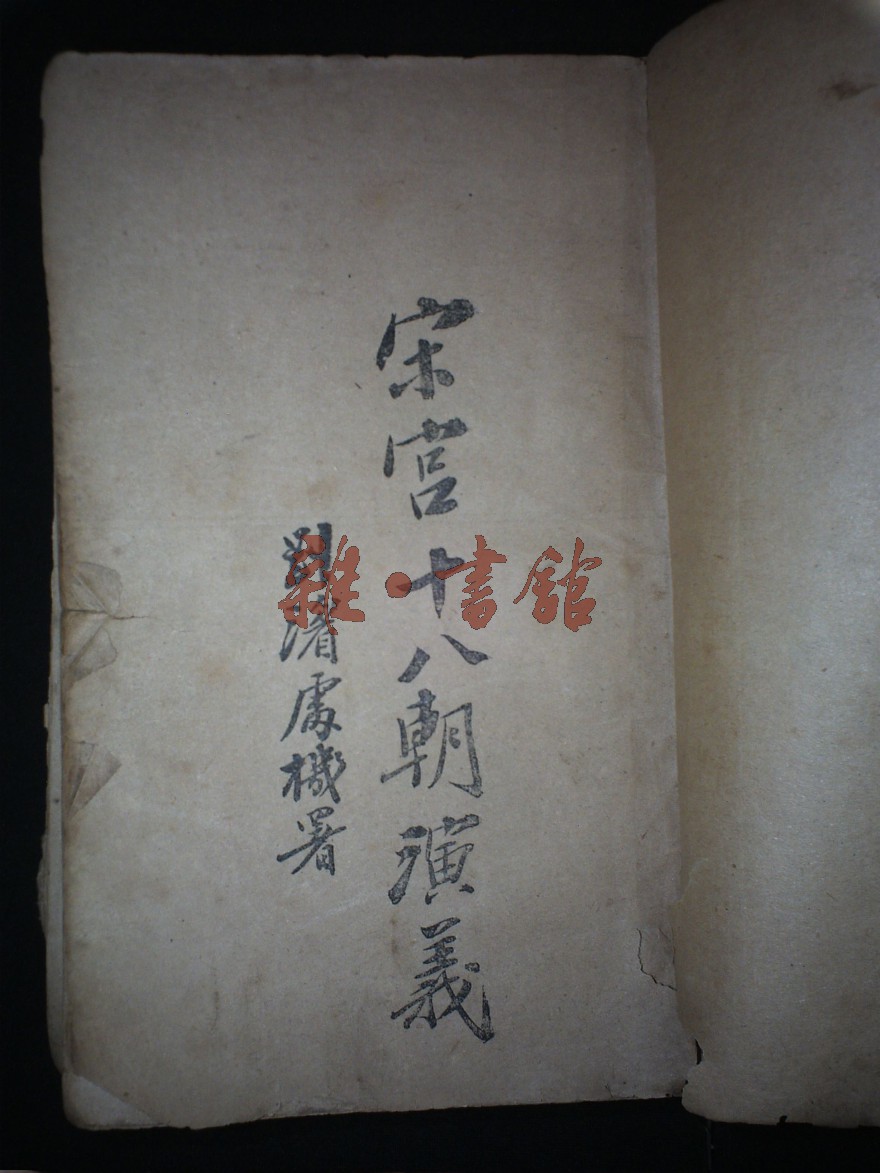 宋宮十八朝演義
劉湑處機署
雜·書館